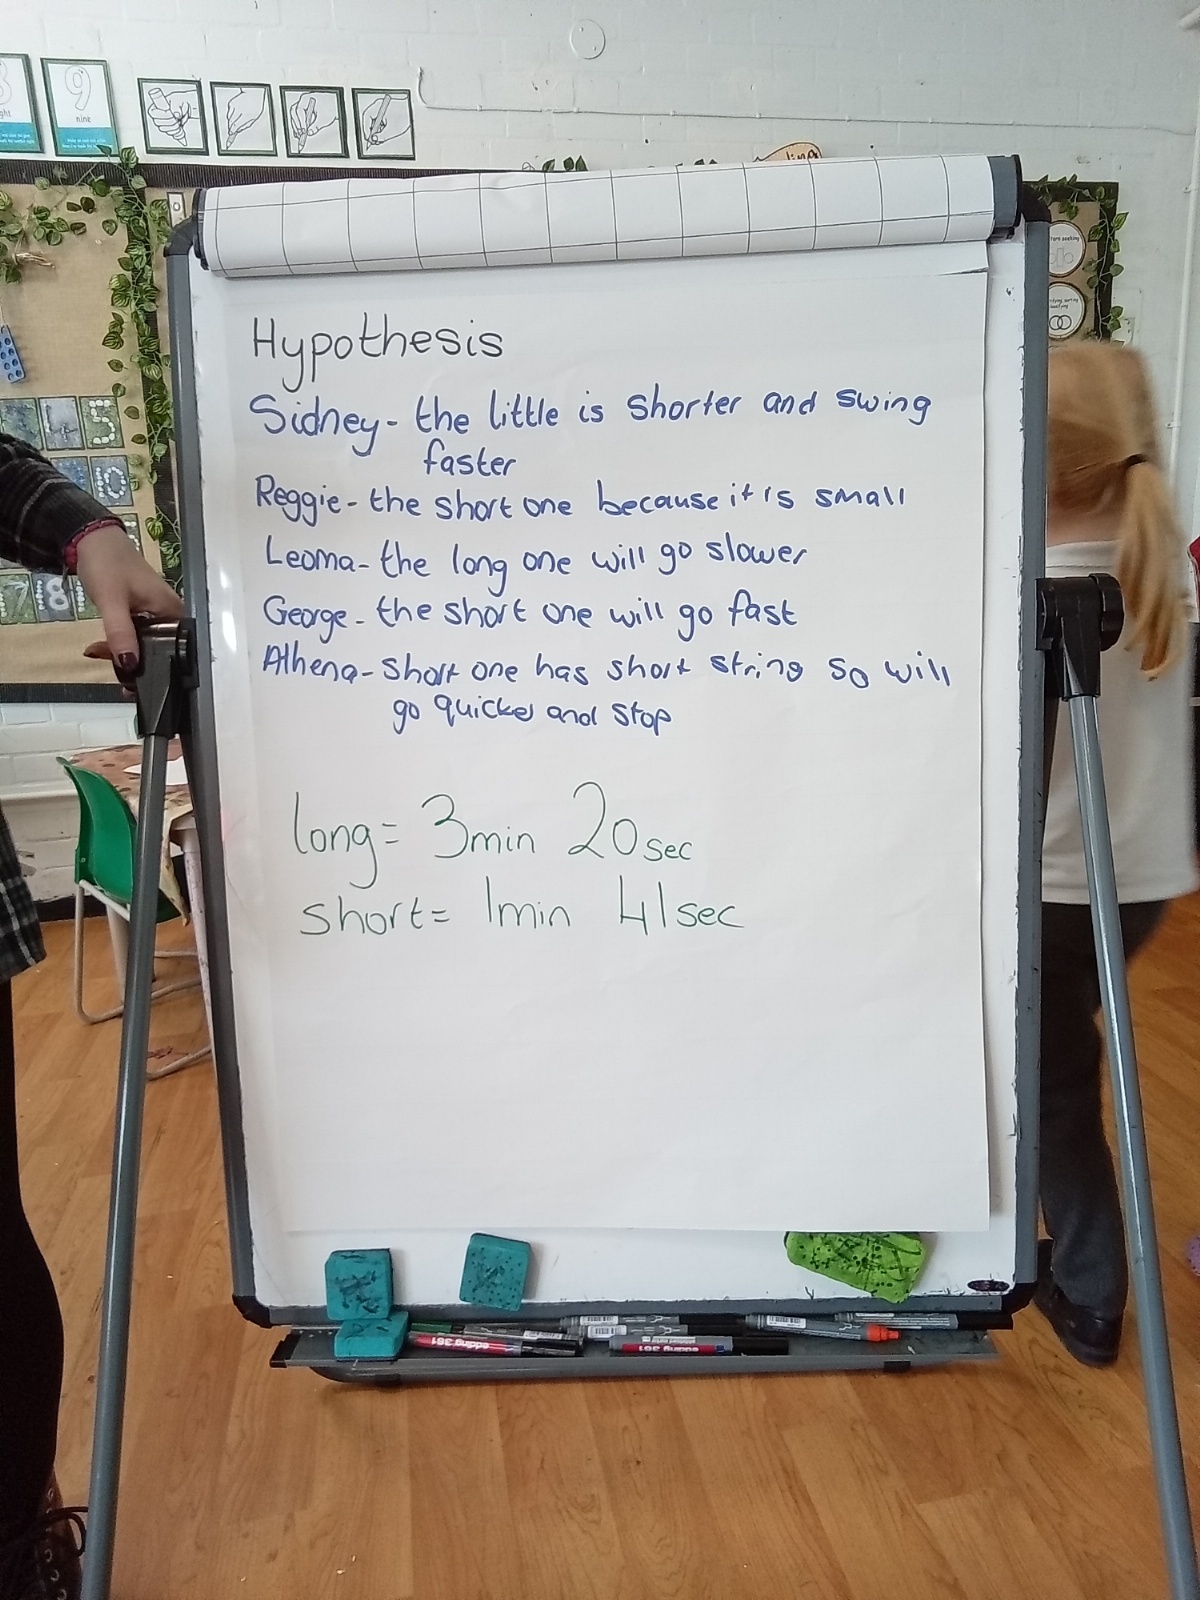 9
nine
Hypothesis
Sidney- the little is shorter and swing
faster
Reggie- the short one because it is small
Leoma- the long one will go slower
George- the short one will go fast
Athena- short one has short string so will
go quicker and stop
long= 3min 20sec
short= 1min 41sec
edding 361
edding 361